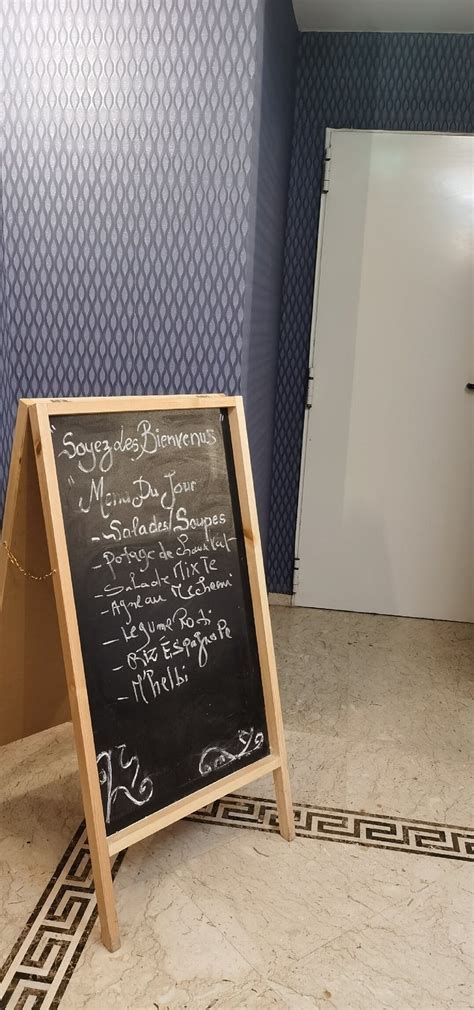 "Soyez des Bienvenus"
"Menu Du Jour
- Salades/Soupes
- Potage de
- Salade MixTe
- Agneau Mechoui
- Legume Roti
- Riz ESpagnole
- M'helbi